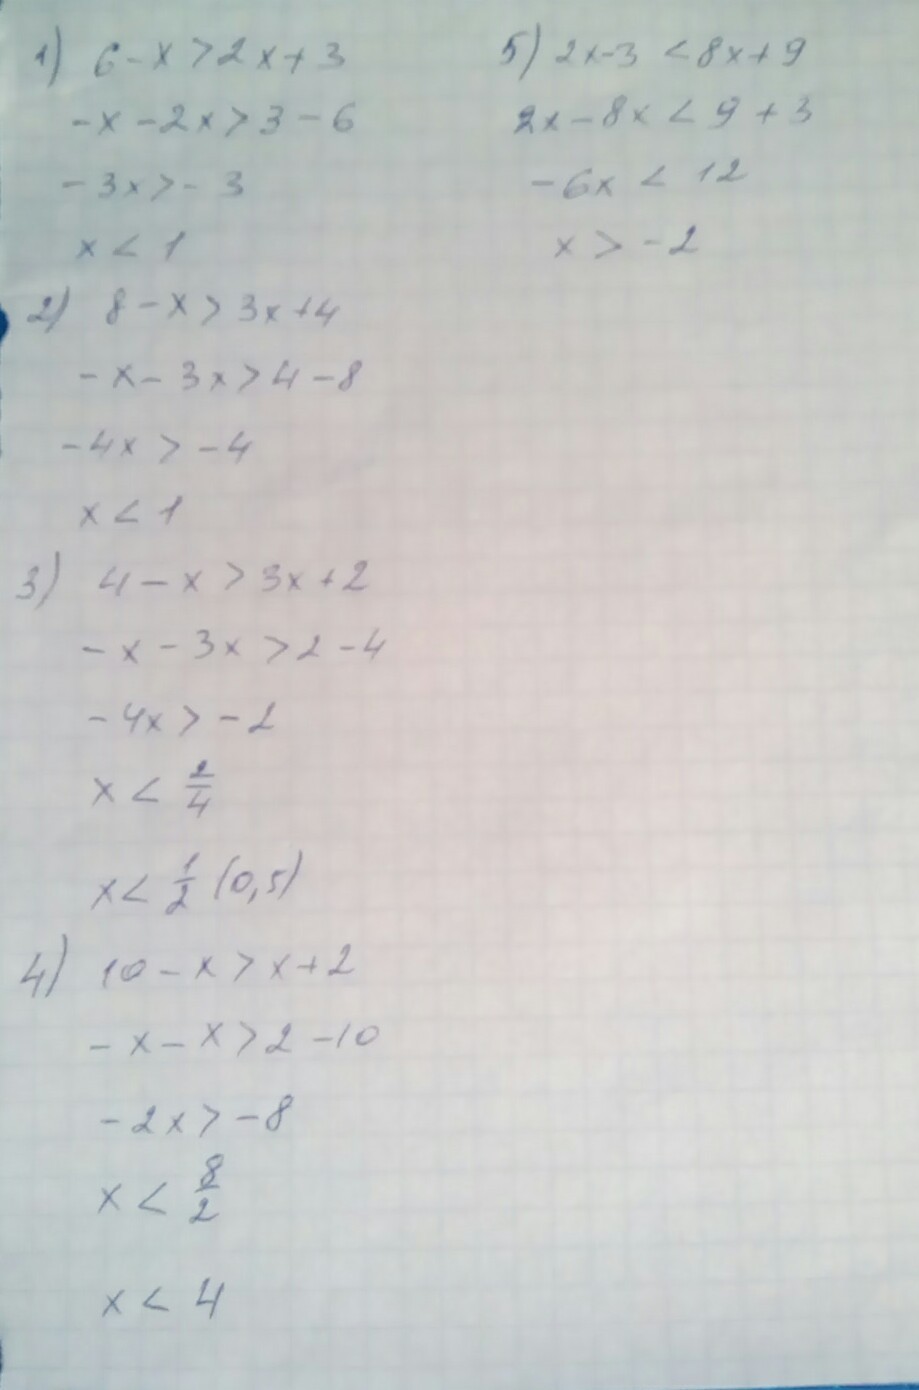 1) 6-x>2x+3
-x-2x>3-6
-3x>-3
x<1
2) 8-x>3x+4
-x-3x>4-8
-4x>-4
x<1
3) 4-x>3x+2
-x-3x>2-4
-4x>-2
x<2/4
x<1/2 (0,5)
4) 10-x>x+2
-x-x>2-10
-2x>-8
x<8/2
x<4
5) 2x-3<8x+9
2x-8x<9+3
-6x<12
x>-2